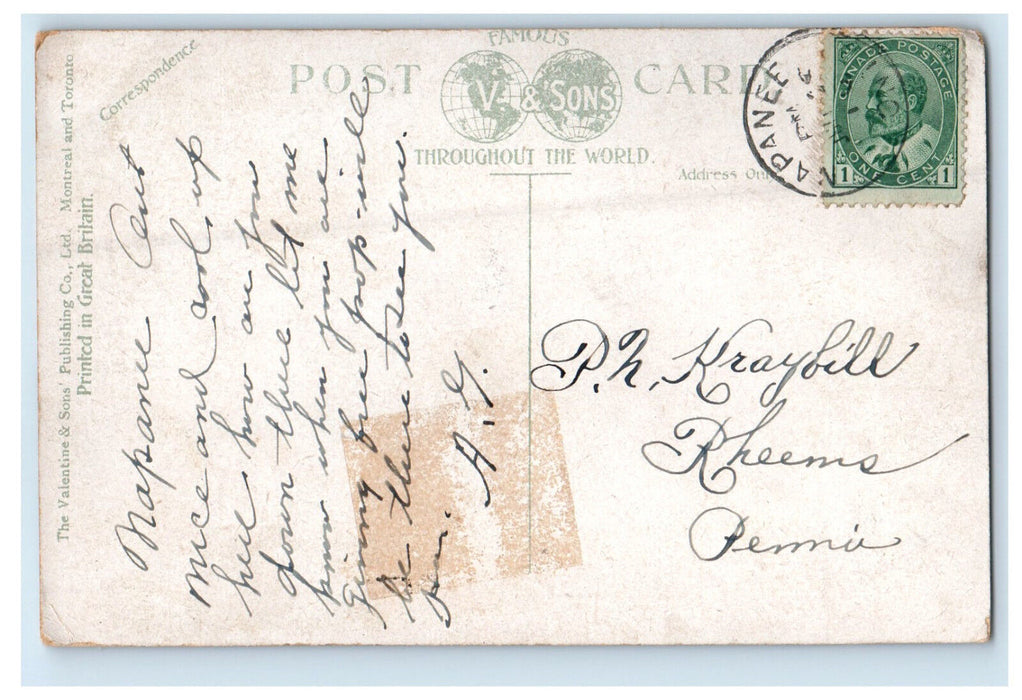 Correspondence
FAMOUS
POST CARD
V. & SONS
THROUGHOUT THE WORLD.
Address Only
The Valentine & Sons' Publishing Co., Ltd. Montreal and Toronto
Printed in Great Britain.
NAPANEE
PM
CANADA POSTAGE
1 ONE CENT 1
Napanee Ont
nice and cool, up
here, how are you
down there let me
know when you are
Giving free pop- will
be there to see you
A. G.
P. N. Kraybill
Rheems
Penna